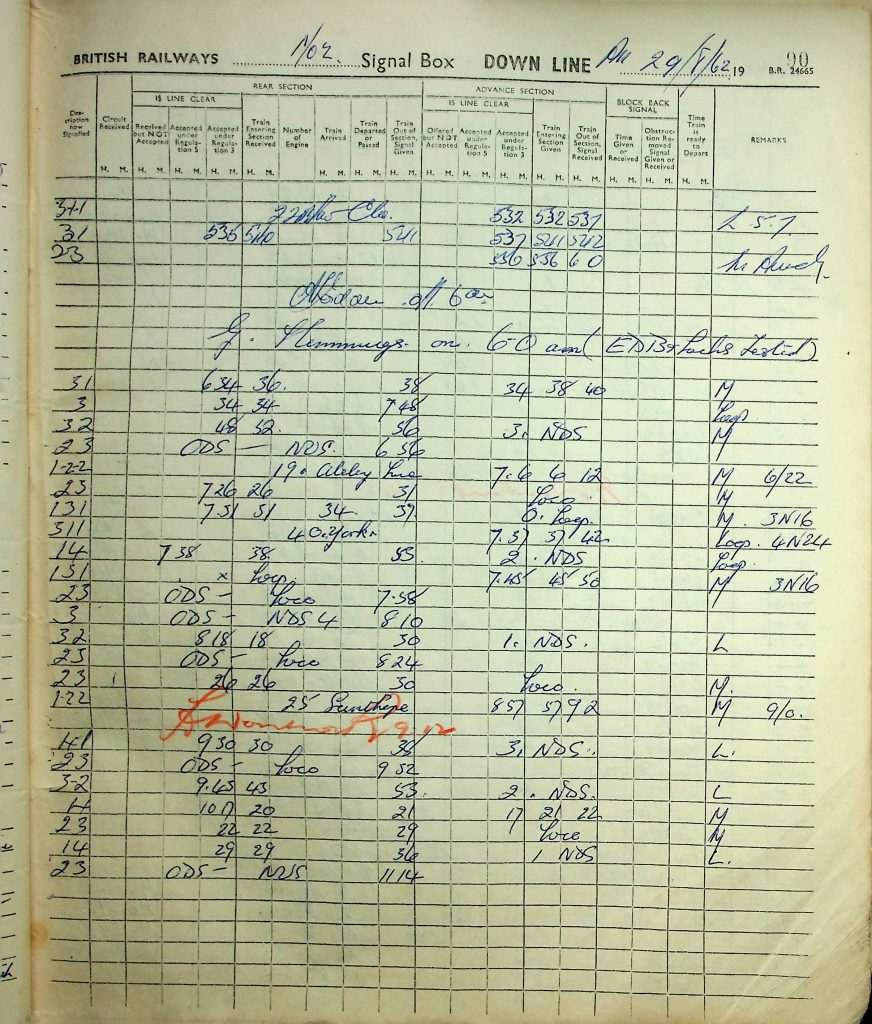 BRITISH RAILWAYS Signal Box DOWN LINE 29/ /62 19 90
B.R. 24665
REAR SECTION ADVANCE SECTION
IS LINE CLEAR IS LINE CLEAR BLOCK BACK SIGNAL
Description how Signalled Circuit Received Received but NOT Accepted Accepted under Regulation 5 Accepted under Regulation 3 Train Entering Section Received Number of Engine Train Arrived Train Departed or Passed Train Out of Section, Signal Given Offered but NOT Accepted Accepted under Regulation 5 Accepted under Regulation 3 Train Entering Section Given Train Out of Section, Signal Received Time Given or Received Obstruction Removed Signal Given or Received Time Train is ready to Depart REMARKS
H. M. H. M. H. M. H. M. H. M. H. M. H. M. H. M. H. M. H. M. H. M. H. M. H. M. H. M. H. M. H. M.
311 532 532 537 L 5.7
31 535 540 541 537 541 542
23 556 556 6 0
off 6 am
G. Hemmings on 6-0 am (ED Bx Locks Tested)
31 634 36. 38 34 38 40 M
3 34 34 748 Loop
32 48 52. 56 3. NDS M
23 ODS – NDS. 6 56
1-2-2 19. 7.6 6 12 M 6/22
23 726 26 31 Loco M
131 7.31 31 34. 37 O. Loop. M. 3N16
311 4 O. York. 7.37 37 42 Loop. 4N24
14 738 38 53. 2. NDS Loop
131 x Loop. 7.45 45 50 M 3N16
23 ODS – Loco 7.58
3 ODS – NDS 4 810
32 818 18 30 1. NDS. L
23 ODS – Loco 824
23 26 26 30 Loco. M.
1-22 25 Scunthorpe 857 57 92 M 9/0.
9.12
41 930 30 38 3. NDS. L.
23 ODS – Loco 9 52
3-2 9.43 43 53. 2. NDS. L
11 1017 20 21 17 21 22 M
23 22 22 29 Loco M
14 29 29 36 1 NDS L.
23 ODS – NDS 1114